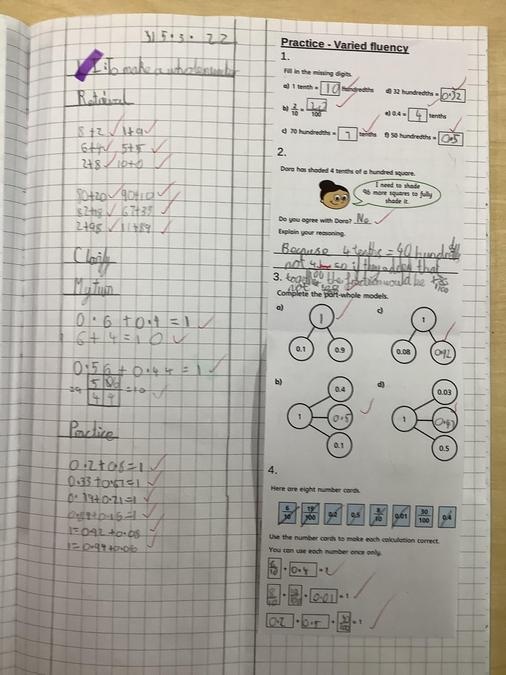 315.3.22
I: To make a whole number
Retrieval
8+2 1+9
6+4 5+5
2+8 10+0
80+20 90+10
82+18 67+33
2+98 11+89
Clarify
My turn
0.6 + 0.4 = 1
6 + 4 = 10
0.56 + 0.44 = 1
Practice
0.33+0.67=1
0.79+0.21=1
1=0.92+0.08
1=0.94+0.06
Practice - Varied fluency
1.
Fill in the missing digits.
a) 1 tenth = 10 hundredths d) 32 hundredths = 0.32
b) 2/10 = /100 e) 0.4 = 4 tenths
c) 70 hundredths = 7 tenths f) 50 hundredths = 0.5
2.
Dora has shaded 4 tenths of a hundred square.
I need to shade
96 more squares to fully
shade it.
Do you agree with Dora? No
Explain your reasoning.
Because 4 tenths = 40
not so if they added that
together the fraction would be
not
3.
Complete the part-whole models.
a) 1 0.1 0.9
c) 1 0.08 0.92
b) 1 0.4 0.5 0.1
d) 1 0.03 0.47 0.5
4.
Here are eight number cards.
6/10 19/100 0.2 0.5 8/10 0.01 30/100 0.4
Use the number cards to make each calculation correct.
You can use each number once only.
6/10 + 0.4 = 1
8/10 + 19/100 + 0.01 = 1
0.2 + 0.5 + 30/100 = 1